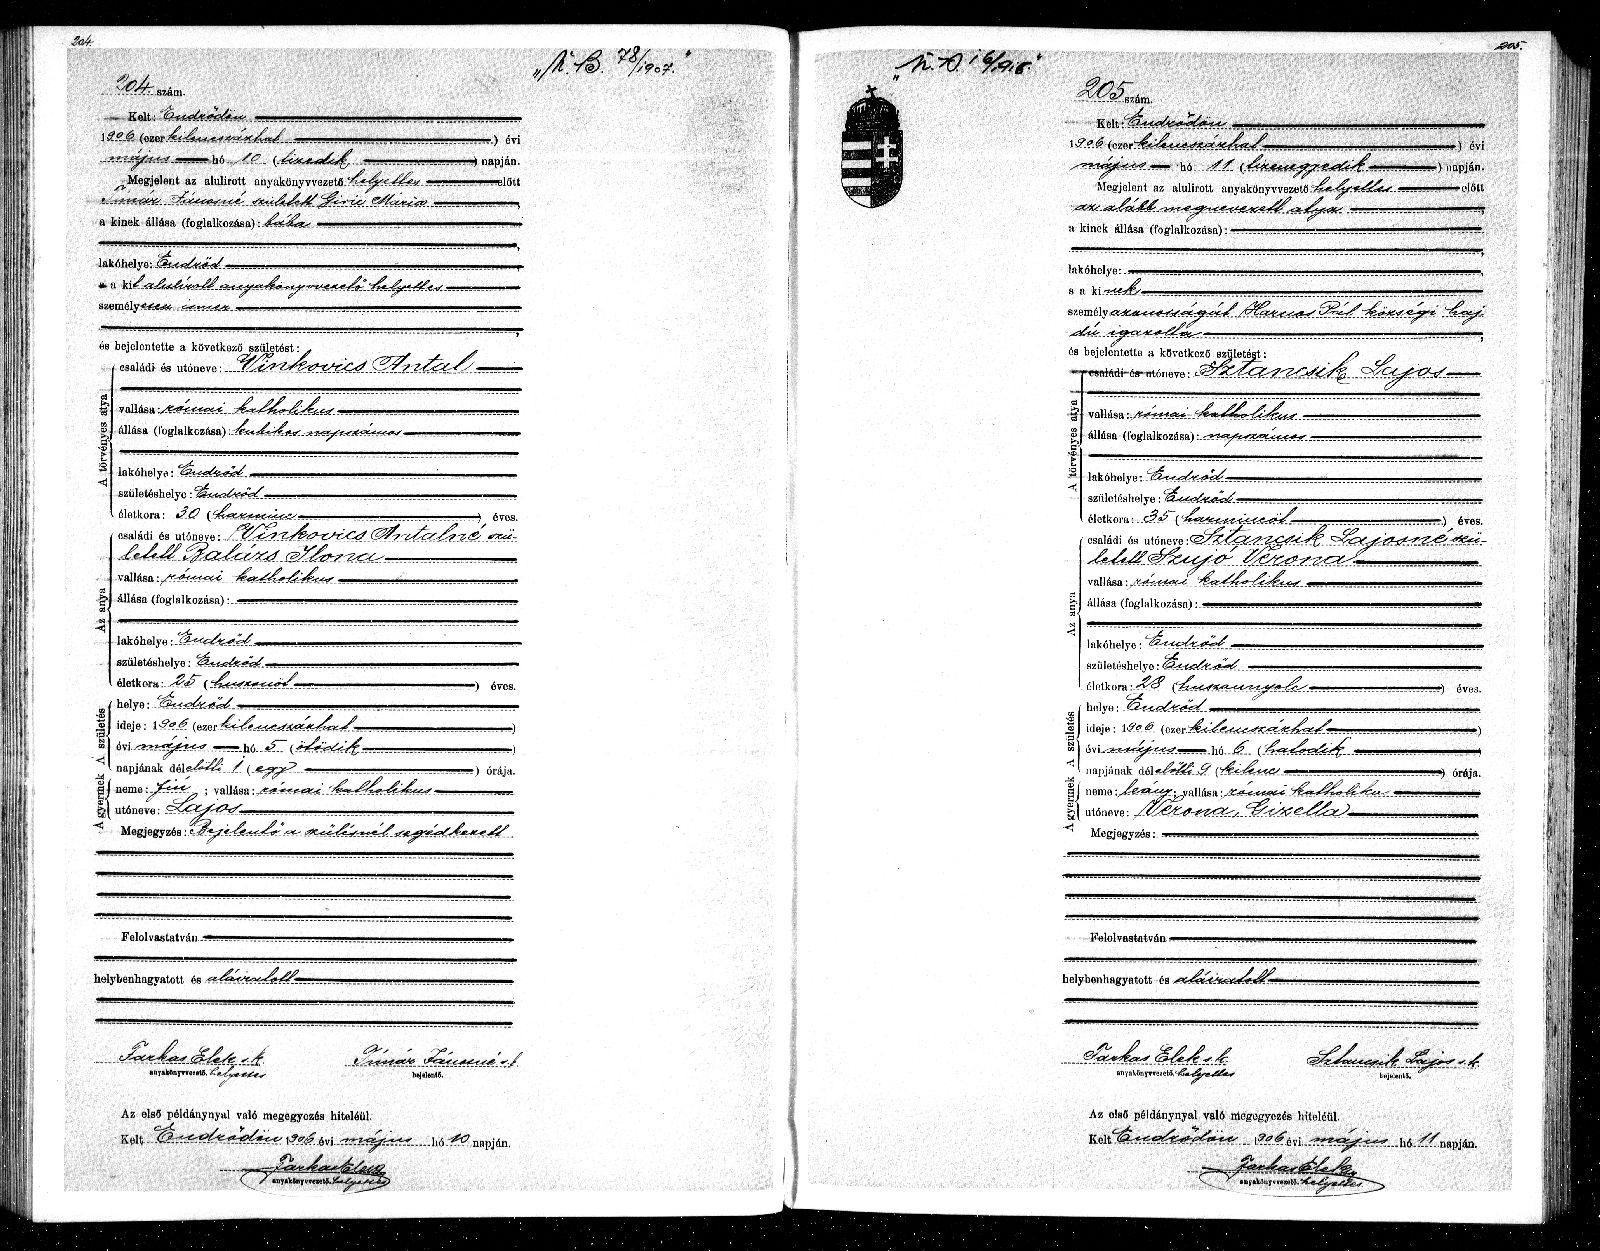 204.
204. szám.
„N. B. 78/1907."
Kelt: Endrődön
1906 (ezer kilencszázhat ) évi
május hó 10 (tizedik ) napján.
Megjelent az alulirott anyakönyvvezető helyettes előtt
Tímár Jánosné született Giric Mária
a kinek állása (foglalkozása): bába
lakóhelye: Endrőd
a kit alulírott anyakönyvvezető helyettes
személyesen ismer
és bejelentette a következő születést:
A törvényes atya
családi és utóneve: Vinkovics Antal
vallása: római katholikus
állása (foglalkozása) kubikos napszámos
lakóhelye: Endrőd
születéshelye: Endrőd
életkora: 30 (harminc ) éves.
Az anya
családi és utóneve: Vinkovics Antalné szü-
letett Balázs Ilona
vallása: római katholikus
állása (foglalkozása):
lakóhelye: Endrőd
születéshelye: Endrőd
életkora: 25 (huszonöt ) éves.
A születés
helye: Endrőd
ideje: 1906 (ezer kilencszázhat )
évi május hó 5 (ötödik )
napjának délelőtti 1 (egy ) órája.
A gyermek
neme: fiú ; vallása: római katholikus
utóneve: Lajos
Megjegyzés: Bejelentő a szülésnél segédkezett
Felolvastatván
helybenhagyatott és aláiratott
Farkas Elek s.k. Tímár Jánosné s.k.
anyakönyvvezető. helyettes bejelentő.
Az első példánynyal való megegyezés hiteléül.
Kelt Endrődön 1906 évi május hó 10 napján.
Farkas Elek
anyakönyvvezető. helyettes
205.
„N. D. 16/1918."
205 szám.
Kelt: Endrődön
1906 (ezer kilencszázhat ) évi
május hó 11 (tizenegyedik ) napján.
Megjelent az alulirott anyakönyvvezető helyettes előtt
az alább megnevezett atya
a kinek állása (foglalkozása):
lakóhelye:
s a kinek
személyazonosságát Harnos Pál községi haj
dú igazolta
és bejelentette a következő születést:
A törvényes atya
családi és utóneve: Sztancsik Lajos
vallása: római katholikus
állása (foglalkozása): napszámos
lakóhelye: Endrőd
születéshelye: Endrőd
életkora: 35 (harmincöt ) éves.
Az anya
családi és utóneve: Sztancsik Lajosné szü-
letett Szujó Verona
vallása: római katholikus
állása (foglalkozása):
lakóhelye: Endrőd
születéshelye: Endrőd
életkora: 28 (huszonnyolc ) éves.
A születés
helye: Endrőd
ideje: 1906 (ezer kilencszázhat )
évi május hó 6 (hatodik )
napjának délelőtti 9 (kilenc ) órája.
A gyermek
neme: leány; vallása: római katholikus
utóneve: Verona, Gizella
Megjegyzés:
Felolvastatván
helybenhagyatott és aláiratott
Farkas Elek s.k. Sztancsik Lajos s.k.
anyakönyvvezető. helyettes bejelentő.
Az első példánynyal való megegyezés hiteléül.
Kelt Endrődön 1906 évi május hó 11 napján.
Farkas Elek
anyakönyvvezető. helyettes